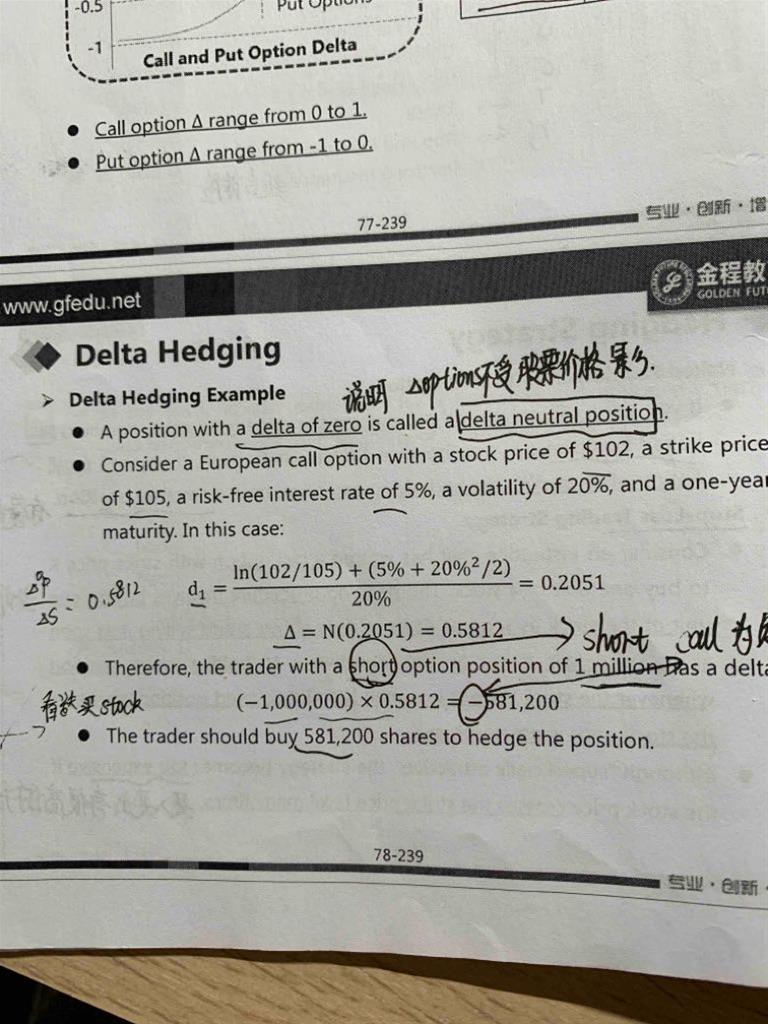 -0.5
Put Option
-1
Call and Put Option Delta
● Call option Δ range from 0 to 1.
● Put option Δ range from -1 to 0.
77-239
专业·创新·增
www.gfedu.net
金程教
GOLDEN FUT
Delta Hedging
说明 Δoptions不受股票价格影响.
➢ Delta Hedging Example
● A position with a delta of zero is called a delta neutral position.
● Consider a European call option with a stock price of $102, a strike price
of $105, a risk-free interest rate of 5%, a volatility of 20%, and a one-year
maturity. In this case:
Δp/ΔS = 0.5812
d₁ = (ln(102/105) + (5% + 20%²/2))/20% = 0.2051
Δ = N(0.2051) = 0.5812
short call 为负
● Therefore, the trader with a short option position of 1 million has a delta
买stock
(−1,000,000) × 0.5812 = −581,200
● The trader should buy 581,200 shares to hedge the position.
78-239
专业·创新